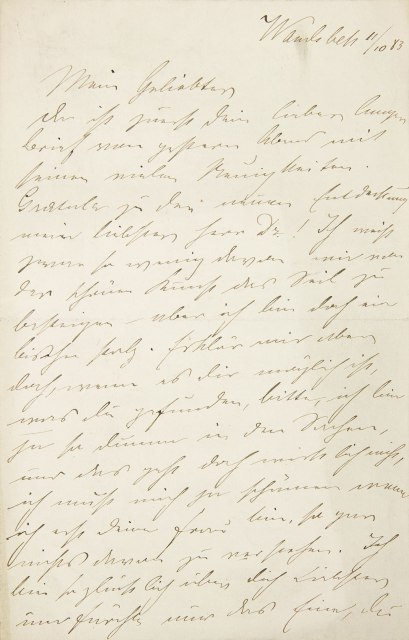 Wandsbek 11/10 83
Mein Geliebter
da ist zuerst Dein lieber langer
Brief von gestern Abend mit
seinen vielen Neuigkeiten.
Gratuliere zu der neuen Entdeckung
mein liebster Herr Dr.! Ich weiß
zwar so wenig davon wie von
der schönen Kunst das Seil zu
besteigen – aber ich bin doch ein
bischen stolz. Erklär mir aber
doch, wenn es dir möglich ist,
was du gefunden, bitte, ich bin
ja so dumm in den Sachen,
und das geht doch wirklich nicht,
ich muß mich ja schämen wenn
ich erst deine Frau bin, so gar
nichts davon zu verstehen. Ich
bin so glücklich über dich Liebster
und fürchte nur das Eine, du